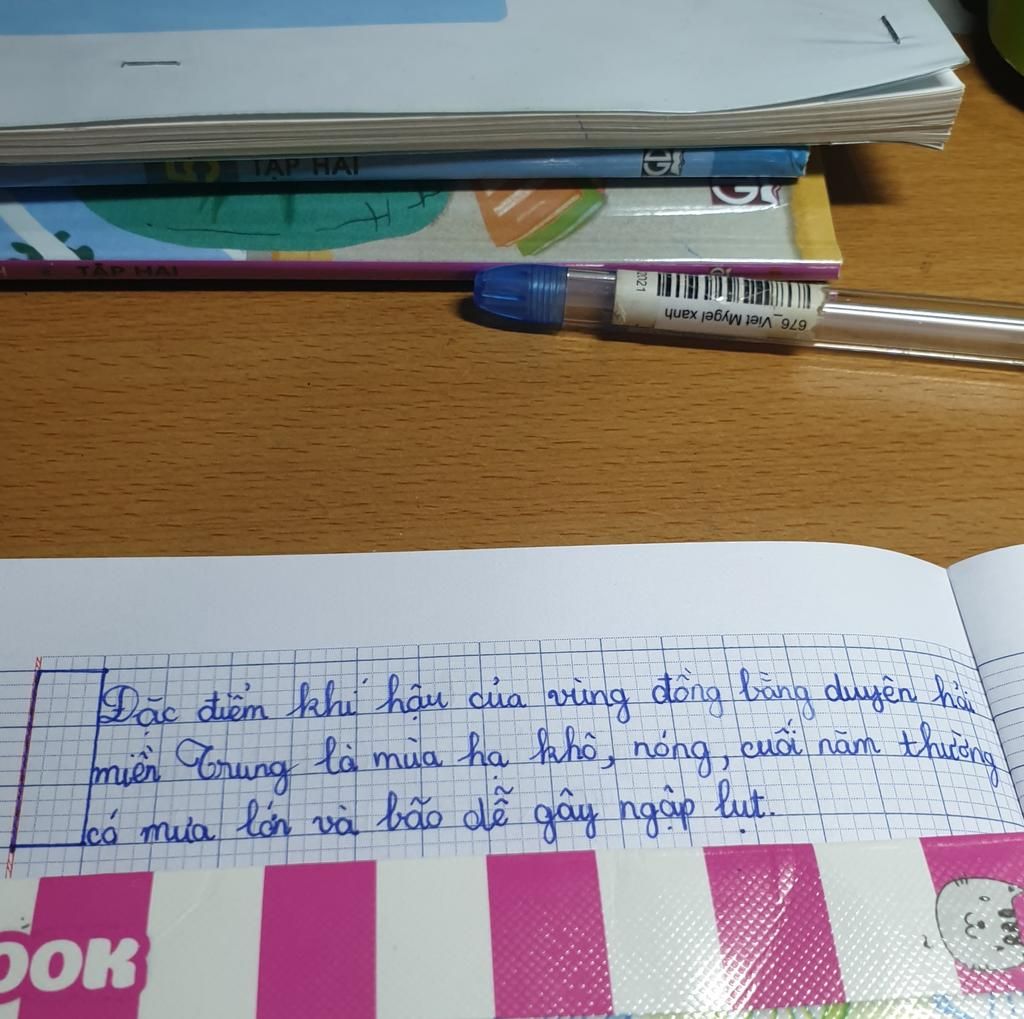 5 TẬP HAI
TẬP HAI
2021
676_Viet Mygel xanh
Đặc điểm khí hậu của vùng đồng bằng duyên hải
miền Trung là mùa hạ khô, nóng, cuối năm thường
có mưa lớn và bão dễ gây ngập lụt.
OOK